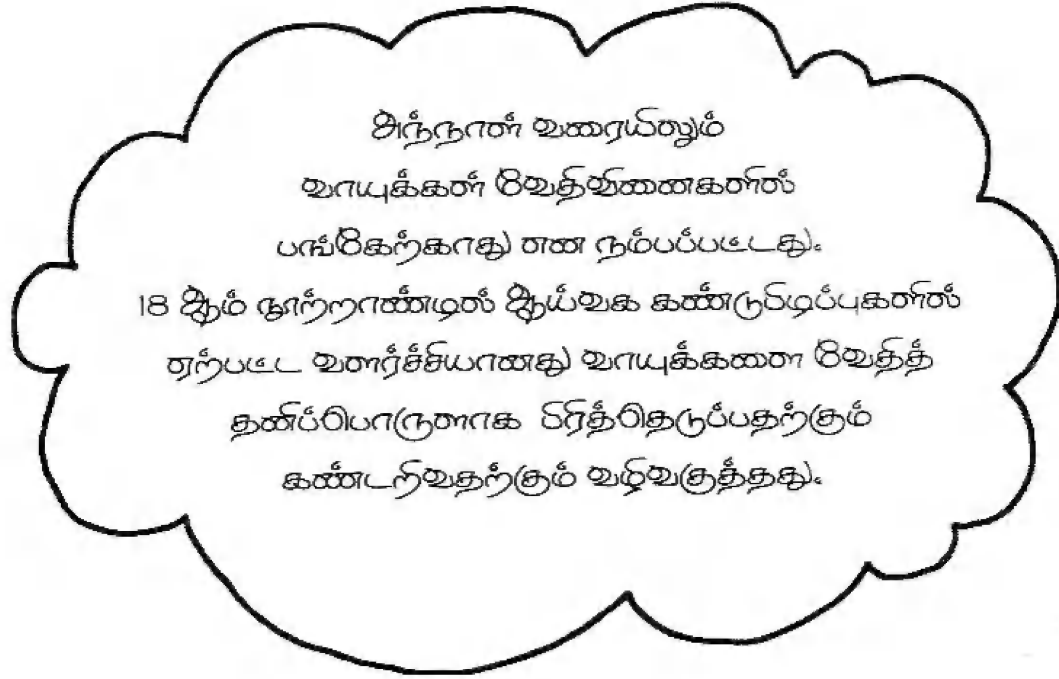 அந்நாள் வரையிலும்
வாயுக்கள் வேதிவினைகளில்
பங்கேற்காது என நம்பப்பட்டது.
18 ஆம் நூற்றாண்டில் ஆய்வக கண்டுபிடிப்புகளில்
ஏற்பட்ட வளர்ச்சியானது வாயுக்களை வேதித்
தனிப்பொருளாக பிரித்தெடுப்பதற்கும்
கண்டறிவதற்கும் வழிவகுத்தது.